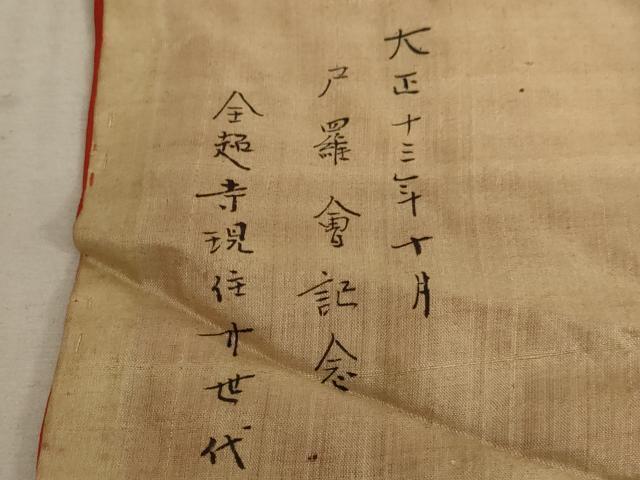 大正十三年十月
戸羅會記念
全超寺現住廿世代